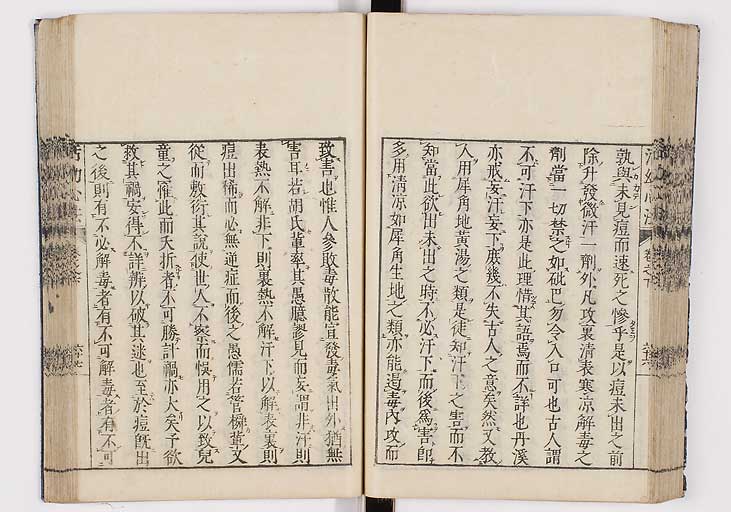 孰與未見痘而速死之慘乎是以痘未出之前
除升發微汗一劑外凡攻裏清表寒凉解毒之
劑當一切禁之如砒巴勿令入口可也古人謂
不可汗下亦是此理惜其語焉而不詳也丹溪
亦戒妄汗妄下庶幾不失古人之意矣然又教
人用犀角地黃湯之類是徒知汗下之害而不
知當此欲出未出之時不必汗下而後爲害卽
多用清凉如犀角生地之類亦能遏毒內攻而
致害也惟人參敗毒散能宣發毒氣出外猶無
害耳若胡氏輩率其愚臆謬見而妄謂非汗則
表熱不解非下則裏熱不解汗下以解表裏則
痘出稀而必無逆症而後之愚儒若管橓輩又
從而敷衍其說使世人不察而悞用之以致兒
童之罹此而夭折者不可勝計禍亦大矣予欲
救其禍安得不詳辨以破其迷也至於痘旣出
之後則有不必解毒者有不可解毒者有不可